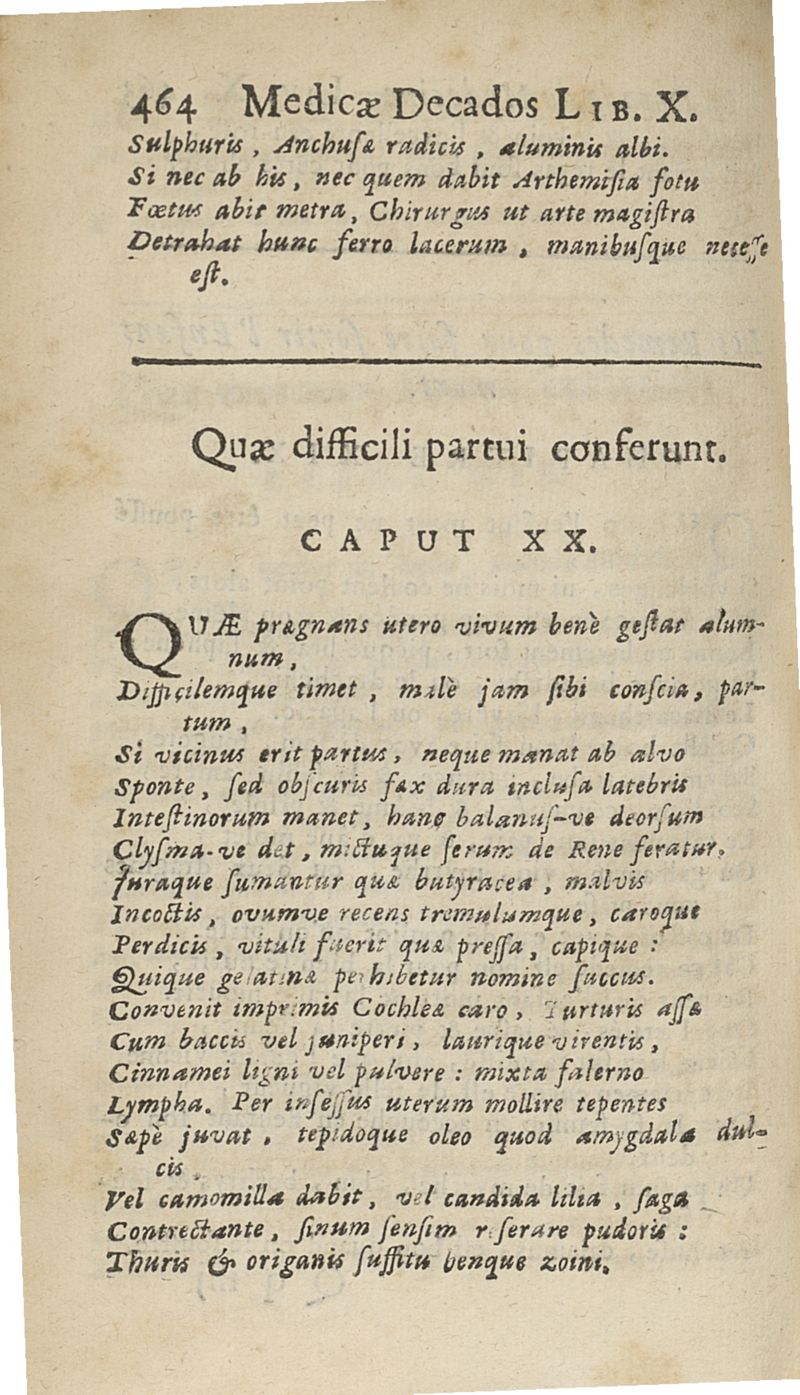 464 Medicæ Decados LIB. X.
Sulphuris, Anchuſæ radicis, aluminis albi.
Si nec ab his, nec quem dabit Arthemiſia fotu
Fœtus abit metra, Chirurgus ut arte magiſtra
Detrahat hunc ferro lacerum, manibuſque neceſſe
eſt.
Quæ difficili partui conferunt.
CAPUT XX.
QUÆ prægnans utero vivum benè geſtat alum-
num,
Difficilemque timet, malè jam ſibi conſcia, par-
tum,
Si vicinus erit partus, neque manat ab alvo
Sponte, ſed obſcuris fæx dura incluſa latebris
Inteſtinorum manet, hanc balanuſ-ve deorſum
Clyſma-ve det, mictuque ſerum de Rene feratur.
Juraque ſumantur quæ butyracea, malvis
Incoctis, ovumve recens tremulumque, caroque
Perdicis, vituli fuerit quæ preſſa, capique:
Quique gelatinæ perhibetur nomine ſuccus.
Convenit imprimis Cochleæ caro, Turturis aſſæ
Cum baccis vel juniperi, laurique virentis,
Cinnamei ligni vel pulvere: mixta falerno
Lympha. Per inſeſſus uterum mollire tepentes
Sæpè juvat, tepidoque oleo quod amygdala dul-
cis,
Vel camomilla dabit, vel candida lilia, ſaga
Contrectante, ſinum ſenſim reſerare pudoris:
Thuris & origanis ſuffitu benque zoini.